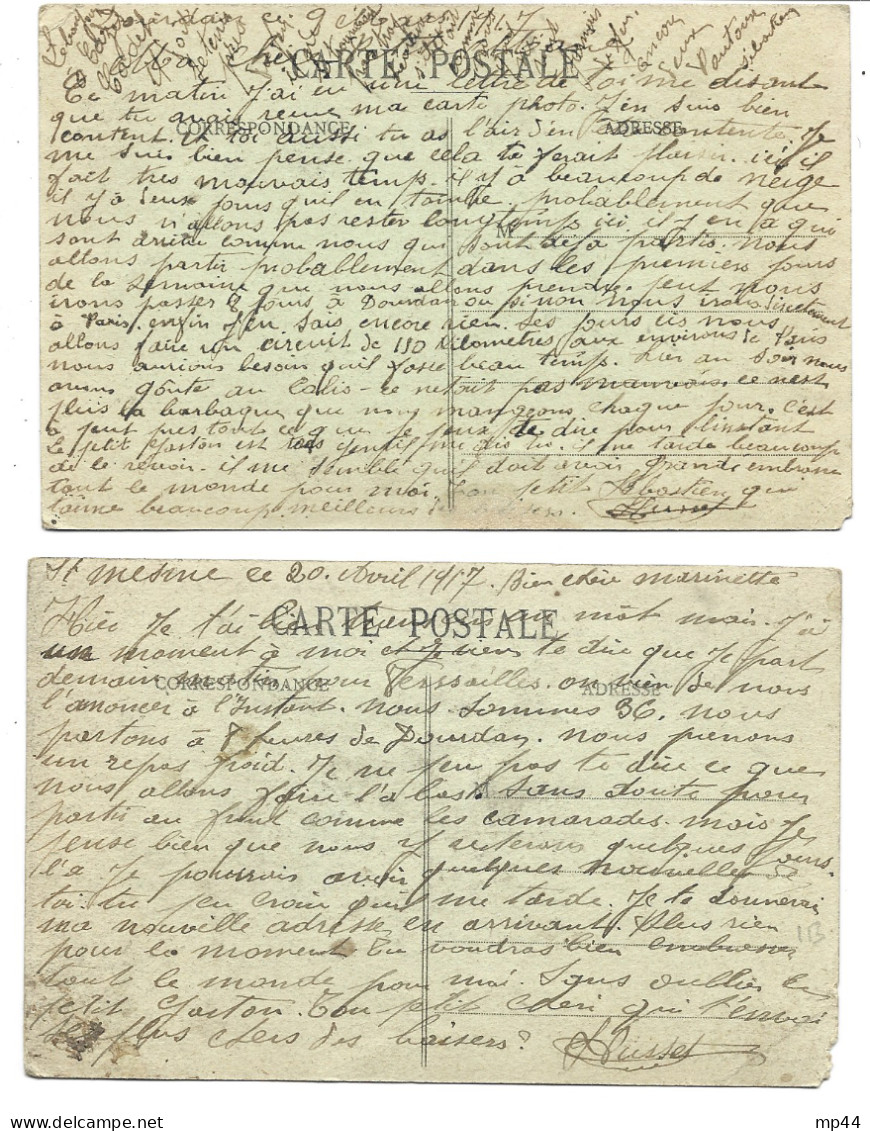 Dourdan ce 9 1917
CARTE POSTALE
Ce matin J'ai eu une lettre de toi me disant
que tu avais reçue ma carte photo. J'en suis bien
CORRESPONDANCE ADRESSE
content. toi aussi tu as l'air d'en contente. Je
me suis bien pensé que cela te ferait plaisir. ici il
fait tres mauvais temps. il y à beaucoup de neige
il y à deux jours qu'il en tombe. probablement que
nous n'allons pas rester longtemps ici. il y en a qui
M
sont arrivé comme nous qui sont déjà partis. nous
allons partir probablement dans les premiers jours
de la semaine qui nous allons prendre. peut nous
irons passer 8 jours à Dourdan ou si non nous irons directement
à Paris. enfin J'en sais encore rien. Ses jours cis nous
allons faire un circuit de 150 Kilometres aux environs de Paris
nous aurions besoin qu'il fasse beau temps. hier au soir nous
avons gouté au ce netait pas mauvais. ce n'est
plus la barbaque que nous mangeons chaque jour. c'est
à peut pres tout ce que je peux te dire pour l'instant
Le petit Gaston est tres gentil me dis tu. il me tarde beaucoup
de le revoir. il me semble qu'il doit avoir grandi embrasse
tout le monde pour moi. Ton petit Sébastien qui
t'aime beaucoup meilleurs baisers.
St mesme ce 20. Avril 1917. Bien chère marinette
CARTE POSTALE
Hier Je t'ai bien un môt mais. J'ai
un moment à moi et Je viens te dire que Je part
demain matin pour Verssailles. on vien de nous
CORRESPONDANCE ADRESSE
l'anoncer à l'instant. nous sommes 36. nous
partons à 8 heures de Dourdan. nous prenons
un repas froid. Je ne peu pas te dire ce que
nous allons faire l'a bas. sans doute pour
M
partir au front comme les camarades. mais Je
pense bien que nous y resterons quelques jours.
l'a Je pourrais avoir quelques nouvelles de
toi. tu peu croire qu'il me tarde. Je te donnerai
ma nouvelle adresse en arrivant. Plus rien
pour la moment Tu voudras bien embrasser
tout le monde pour moi. Sans oublier le
petit Gaston. Ton petit cheri qui t'envoi
Ses plus chers des baisers.
113
mp44